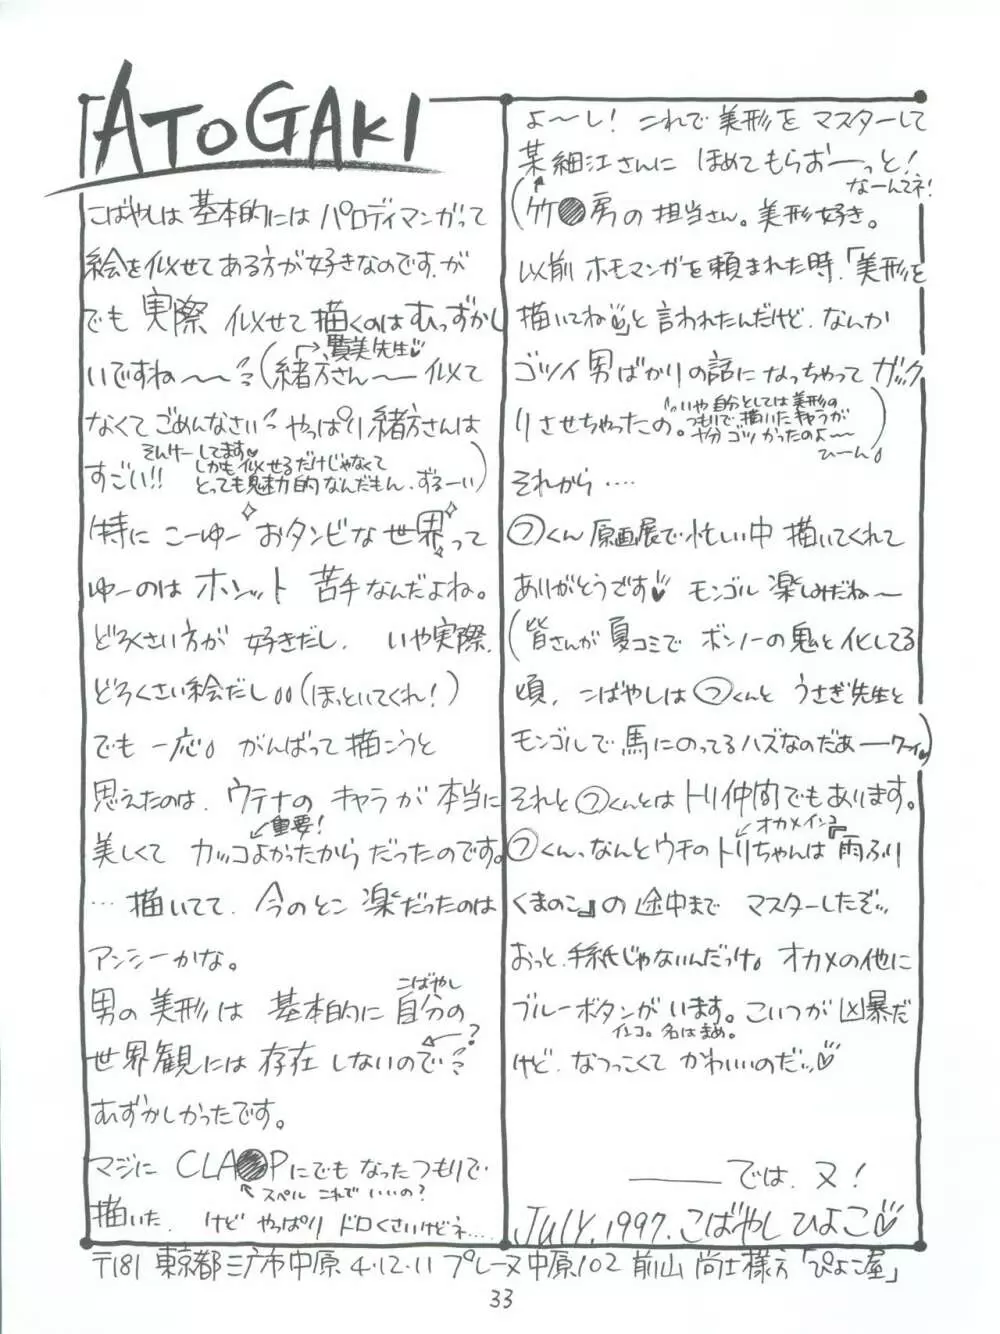 ATOGAKI
こばやしは基本的にはパロディマンガって
絵を似せてある方が好きなのです、が
でも実際 似せて描くのはむっずかし
いですね〜〜（緒方さん〜〜似て
→賢美先生♡
なくてごめんなさい やっぱり緒方さんは
すごい!!
そんけーしてます♡
しかも似せるだけじゃなくて
とっても魅力的なんだもん、ずるーい）
特に こーゆー おタンビな世界って
ゆーのはホントット 苦手なんだよね。
どろくさい方が 好きだし、 いや実際、
どろくさい絵だし。。（ほっといてくれ！）
でも 一応。 がんばって描こうと
思えたのは、ウテナの キャラが 本当に
美しくて カッコよかったからだったのです。
重要！
… 描いてて、今のとこ 楽だったのは
アンシーかな。
男の美形は 基本的に自分の
こばやし
世界観には存在 しないので
?
むずかしかったです。
マジに CLA●Pにでも なったつもりで
スペル これでいいの？
描いた。 けど やっぱり ドロくさいけどネ…
よ〜し！ これで美形を マスターして
某細江さんに ほめてもらおーーっと！
なーんてネ！
（竹●房の担当さん。美形好き。
以前 ホモマンガを頼まれた時、「美形を
描いてね♡」と言われたんだけど、なんか
ゴツイ男ばかりの話になっちゃって ガック
リさせちゃったの。
いや自分としては美形の
つもりで描いたキャラが
十分ゴツかったのよ〜〜
ひーん。）
それから ‥‥
㋡くん 原画展で忙しい中 描いてくれて
ありがとうです♡ モンゴル 楽しみだね〜
（皆さんが夏コミで ボンノーの鬼と化してる
頃、こばやしは㋡くんと うさぎ先生と
モンゴルで馬にのってるハズなのだあーーワーイ）
それと㋡くんとはトリ仲間でもあります。
㋡くん、なんとウチのトリちゃんは『雨ふり
オカメインコ
くまのこ』の途中まで マスターしたぞ
おっと、手紙じゃないんだっけ。オカメの他に
ブルーボタンが います。こいつが凶暴だ
インコ。名はまめ。
けど、なつっこくて かわいいのだ♡
―― では、又！
JULY.1997.こばやしひよこ♡
〒181 東京都三鷹市中原4-12-11 プレーヌ中原102 前山尚士様方「ぴよこ屋」
33